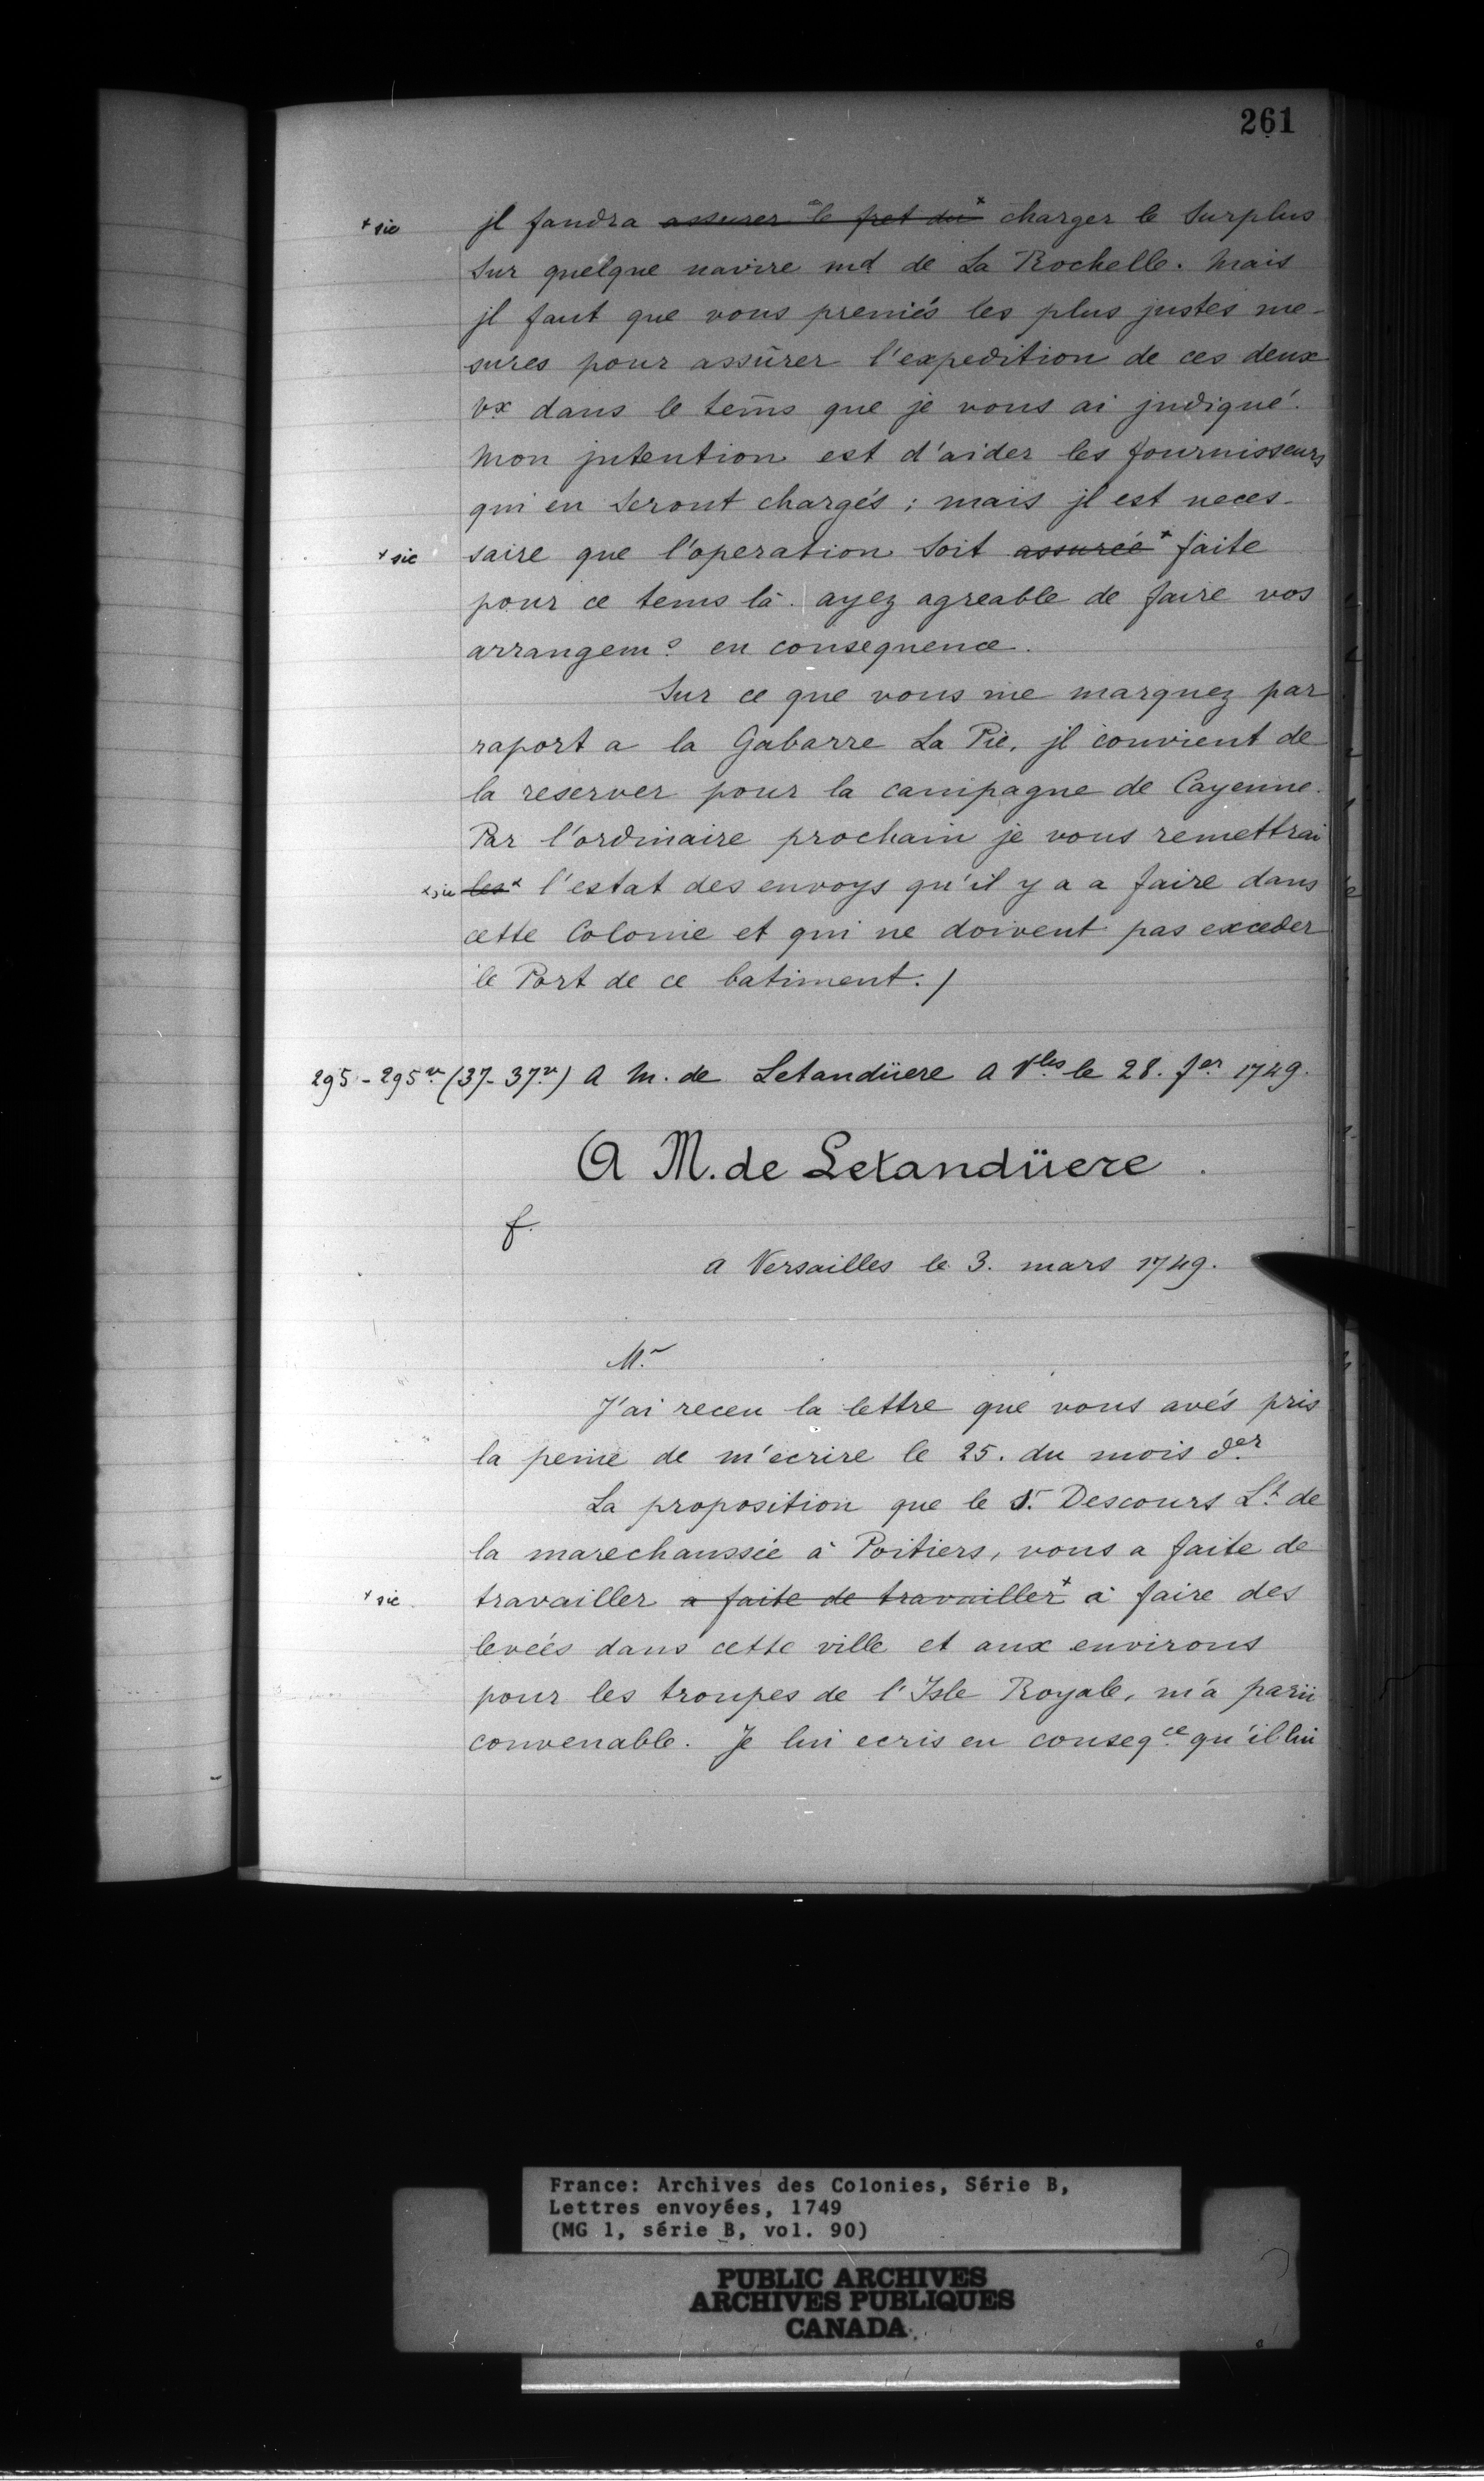 261
+ sic jl faudra assurer le fret du+ charger le Surplus
Sur quelque navire md de La Rochelle. Mais
jl faut que vous preniés les plus justes me-
sures pour assûrer l'expedition de ces deux
vx dans le tems que je vous ai jndiqué.
Mon jntention est d'aider les fournisseurs
qui en Seront chargés ; mais jl est neces-
+ sic saire que l'operation Soit assureé+ faite
pour ce tems là. ayez agreable de faire vos
arrangem.s en consequence.
Sur ce que vous me marquez par
raport a la Gabarre La Pie, jl convient de
la reserver pour la campagne de Cayenne.
Par l'ordinaire prochain je vous remettrai
x sic les x l'estat des envoys qu'il y a a faire dans
cette Colonie et qui ne doivent pas exceder
le Port de ce batiment./
295 - 295v. (37-37v.) A M. de Letandüere A Vles le 28. fer 1749.
A M. de Letandüere.
f.
a Versailles le 3. mars 1749.
M.r
J'ai receu la lettre que vous avés pris
la peine de m'ecrire le 25. du mois d.er
La proposition que le S.r Descours L.t de
la marechaussée à Poitiers, vous a faite de
+ sic travailler a faite de travailler+ à faire des
leveés dans cette ville et aux environs
pour les troupes de l'Isle Royale, m'a parü
convenable. Je lui ecris en conseq.ce qu'il lui
France: Archives des Colonies, Série B,
Lettres envoyées, 1749
(MG 1, série B, vol. 90)
PUBLIC ARCHIVES
ARCHIVES PUBLIQUES
CANADA